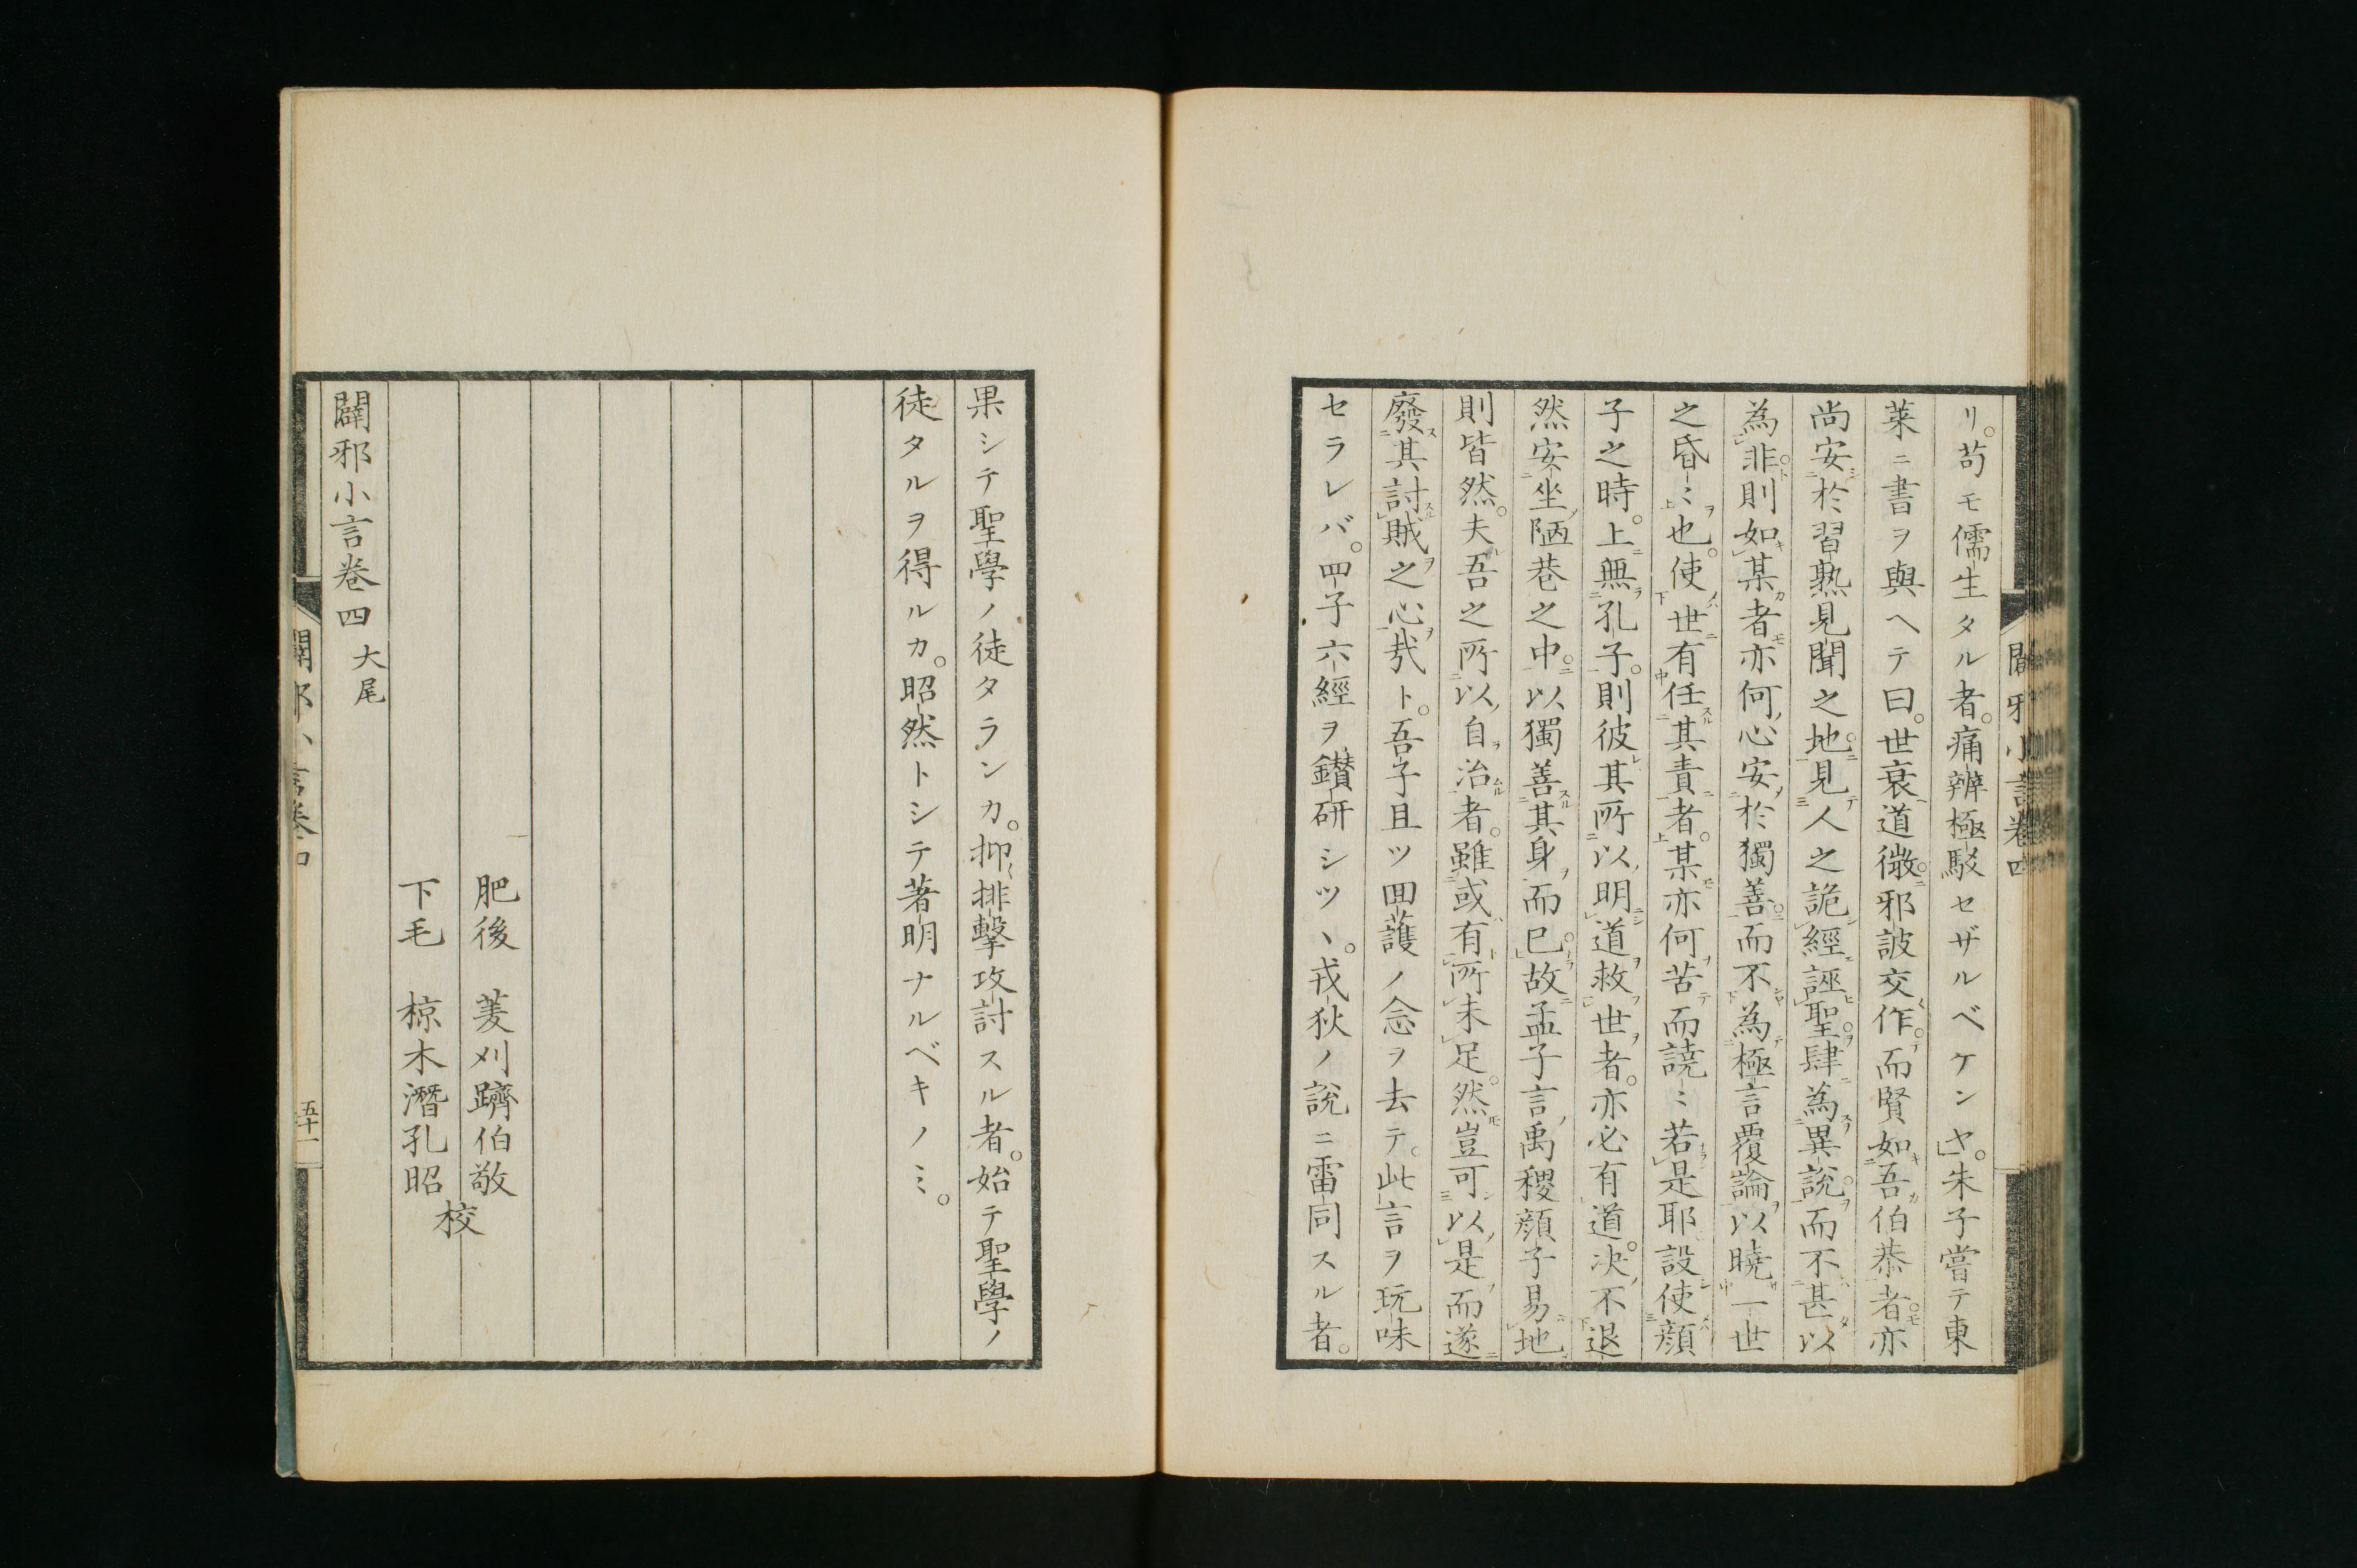 リ。苟モ儒生タル者。痛辨極駁セザルベケンヤ。」朱子嘗テ東
莱ニ書ヲ與ヘテ曰。世衰道微。邪詖交作。而賢如吾伯恭者。亦
尚安於習熟見聞之地。見人之詭經誣聖。肆為異說。而不甚以
為非。則如某者。亦何心安於獨善。而不為極言覆論。以曉一世
之昏〻也。使世有任其責者。某亦何苦而譊〻若是耶。設使顏
子之時。上無孔子。則彼其所以明道救世者。亦必有道。決不退
然安坐陋巷之中。以獨善其身而已。故孟子言禹稷顏子易地
則皆然。夫吾之所以自治者。雖或有所未足。然豈可以是而遂
廢其討賊之心哉ト。吾子且ツ回護ノ念ヲ去テ。此言ヲ玩味
セラレバ。四子六經ヲ鑚研シツヽ。戎狄ノ說ニ雷同スル者。
闢邪小言卷四
果シテ聖學ノ徒タランカ。抑〻排擊攻討スル者。始テ聖學ノ
徒タルヲ得ルカ。昭然トシテ著明ナルベキノミ。
肥後 菱刈躋伯敬
下毛 椋木潛孔昭
校
闢邪小言卷四 大尾
五十一